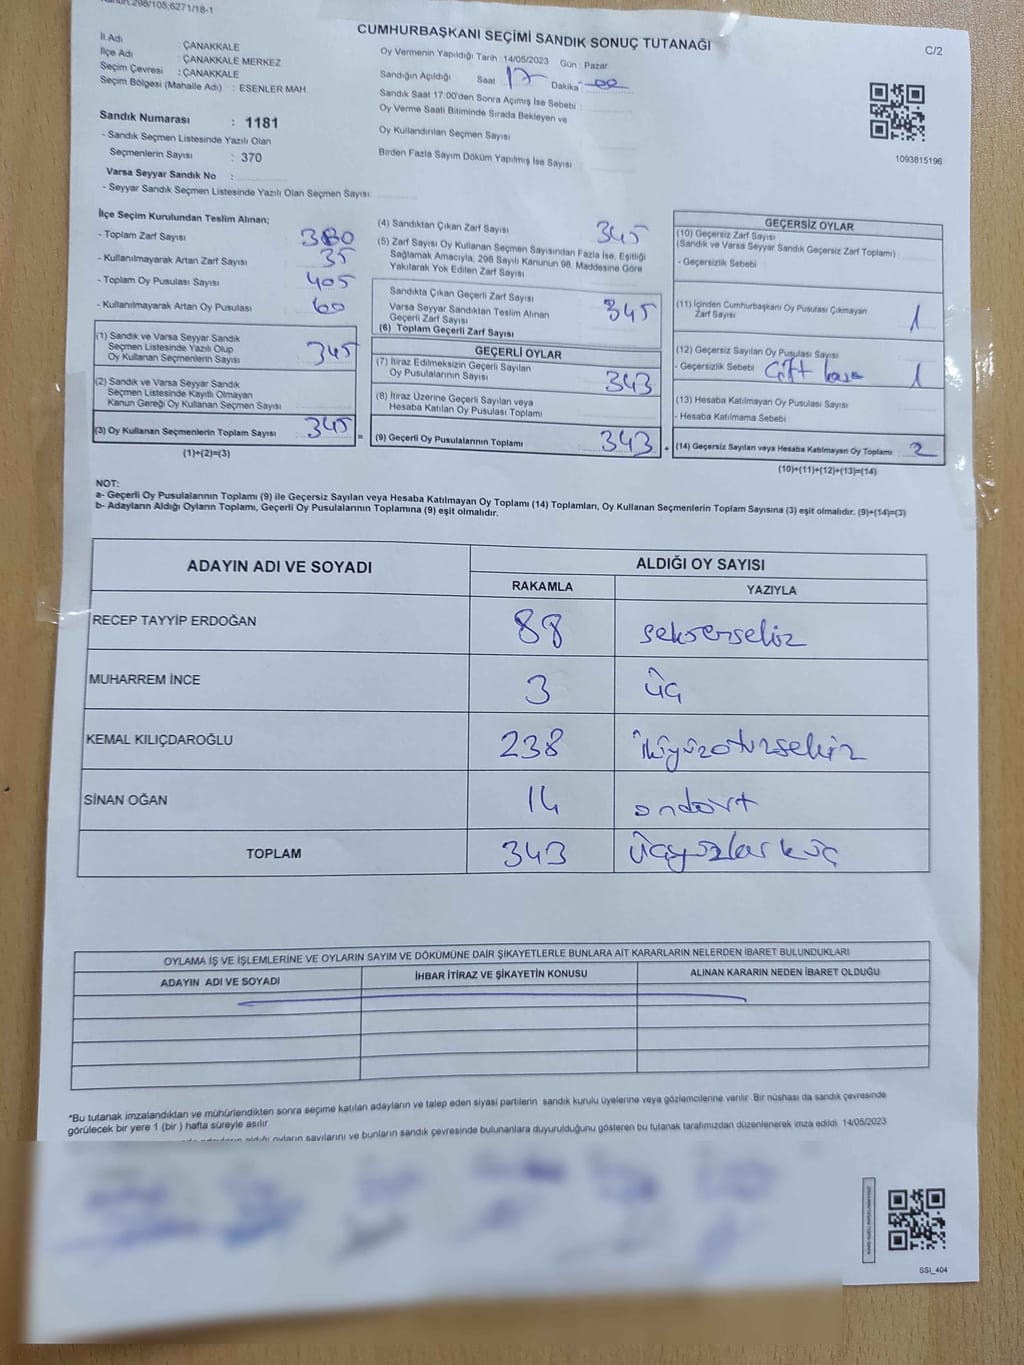 Kanun:298/105;6271/18-1
CUMHURBAŞKANI SEÇİMİ SANDIK SONUÇ TUTANAĞI
C/2
İl Adı : ÇANAKKALE
İlçe Adı : ÇANAKKALE MERKEZ
Seçim Çevresi : ÇANAKKALE
Seçim Bölgesi (Mahalle Adı) : ESENLER MAH.
Sandık Numarası : 1181
- Sandık Seçmen Listesinde Yazılı Olan
Seçmenlerin Sayısı : 370
Varsa Seyyar Sandık No :
- Seyyar Sandık Seçmen Listesinde Yazılı Olan Seçmen Sayısı:
Oy Vermenin Yapıldığı Tarih :14/05/2023 Gün : Pazar
Sandığın Açıldığı Saat 17 Dakika 00
Sandık Saat 17:00'den Sonra Açımış İse Sebebi :
Oy Verme Saati Bitiminde Sırada Bekleyen ve
Oy Kullandırılan Seçmen Sayısı
Birden Fazla Sayım Döküm Yapılmış İse Sayısı
1093815196
İlçe Seçim Kurulundan Teslim Alınan;
- Toplam Zarf Sayısı 380
- Kullanılmayarak Artan Zarf Sayısı 35
- Toplam Oy Pusulası Sayısı 405
- Kullanılmayarak Artan Oy Pusulası 60
(1) Sandık ve Varsa Seyyar Sandık
Seçmen Listesinde Yazılı Olup
Oy Kullanan Seçmenlerin Sayısı 345
(2) Sandık ve Varsa Seyyar Sandık
Seçmen Listesinde Kayıtlı Olmayan
Kanun Gereği Oy Kullanan Seçmen Sayısı
(3) Oy Kullanan Seçmenlerin Toplam Sayısı 345
(1)+(2)=(3)
=
(4) Sandıktan Çıkan Zarf Sayısı 345
(5) Zarf Sayısı Oy Kullanan Seçmen Sayısından Fazla İse, Eşitliği
Sağlamak Amacıyla, 298 Sayılı Kanunun 98. Maddesine Göre
Yakılarak Yok Edilen Zarf Sayısı
Sandıkta Çıkan Geçerli Zarf Sayısı
Varsa Seyyar Sandıktan Teslim Alınan
Geçerli Zarf Sayısı
(6) Toplam Geçerli Zarf Sayısı 345
GEÇERLİ OYLAR
(7) İtiraz Edilmeksizin Geçerli Sayılan
Oy Pusulalarının Sayısı 343
(8) İtiraz Üzerine Geçerli Sayılan veya
Hesaba Katılan Oy Pusulası Toplamı
(9) Geçerli Oy Pusulalarının Toplamı 343
+
GEÇERSİZ OYLAR
(10) Geçersiz Zarf Sayısı
(Sandık ve Varsa Seyyar Sandık Geçersiz Zarf Toplamı)
- Geçersizlik Sebebi
(11) İçinden Cumhurbaşkanı Oy Pusulası Çıkmayan
Zarf Sayısı 1
(12) Geçersiz Sayılan Oy Pusulası Sayısı
- Geçersizlik Sebebi Çift 1
(13) Hesaba Katılmayan Oy Pusulası Sayısı
- Hesaba Katılmama Sebebi
(14) Geçersiz Sayılan veya Hesaba Katılmayan Oy Toplamı 2
(10)+(11)+(12)+(13)=(14)
NOT:
a- Geçerli Oy Pusulalarının Toplamı (9) ile Geçersiz Sayılan veya Hesaba Katılmayan Oy Toplamı (14) Toplamları, Oy Kullanan Seçmenlerin Toplam Sayısına (3) eşit olmalıdır. (9)+(14)=(3)
b- Adayların Aldığı Oyların Toplamı, Geçerli Oy Pusulalarının Toplamına (9) eşit olmalıdır.
ADAYIN ADI VE SOYADI
ALDIĞI OY SAYISI
RAKAMLA YAZIYLA
RECEP TAYYİP ERDOĞAN 88 seksensekiz
MUHARREM İNCE 3 üç
KEMAL KILIÇDAROĞLU 238 ikiyüzotuzsekiz
SİNAN OĞAN 14 ondört
TOPLAM 343 üçyüzkırküç
OYLAMA İŞ VE İŞLEMLERİNE VE OYLARIN SAYIM VE DÖKÜMÜNE DAİR ŞİKAYETLERLE BUNLARA AİT KARARLARIN NELERDEN İBARET BULUNDUKLARI
ADAYIN ADI VE SOYADI İHBAR İTİRAZ VE ŞİKAYETİN KONUSU ALINAN KARARIN NEDEN İBARET OLDUĞU
*Bu tutanak imzalandıktan ve mühürlendikten sonra seçime katılan adayların ve talep eden siyasi partilerin sandık kurulu üyelerine veya gözlemcilerine verilir. Bir nüshası da sandık çevresinde
görülecek bir yere 1 (bir ) hafta süreyle asılır.
aldığı oyların sayılarını ve bunların sandık çevresinde bulunanlara duyurulduğunu gösteren bu tutanak tarafımızdan düzenlenerek imza edildi. 14/05/2023
SSI_404